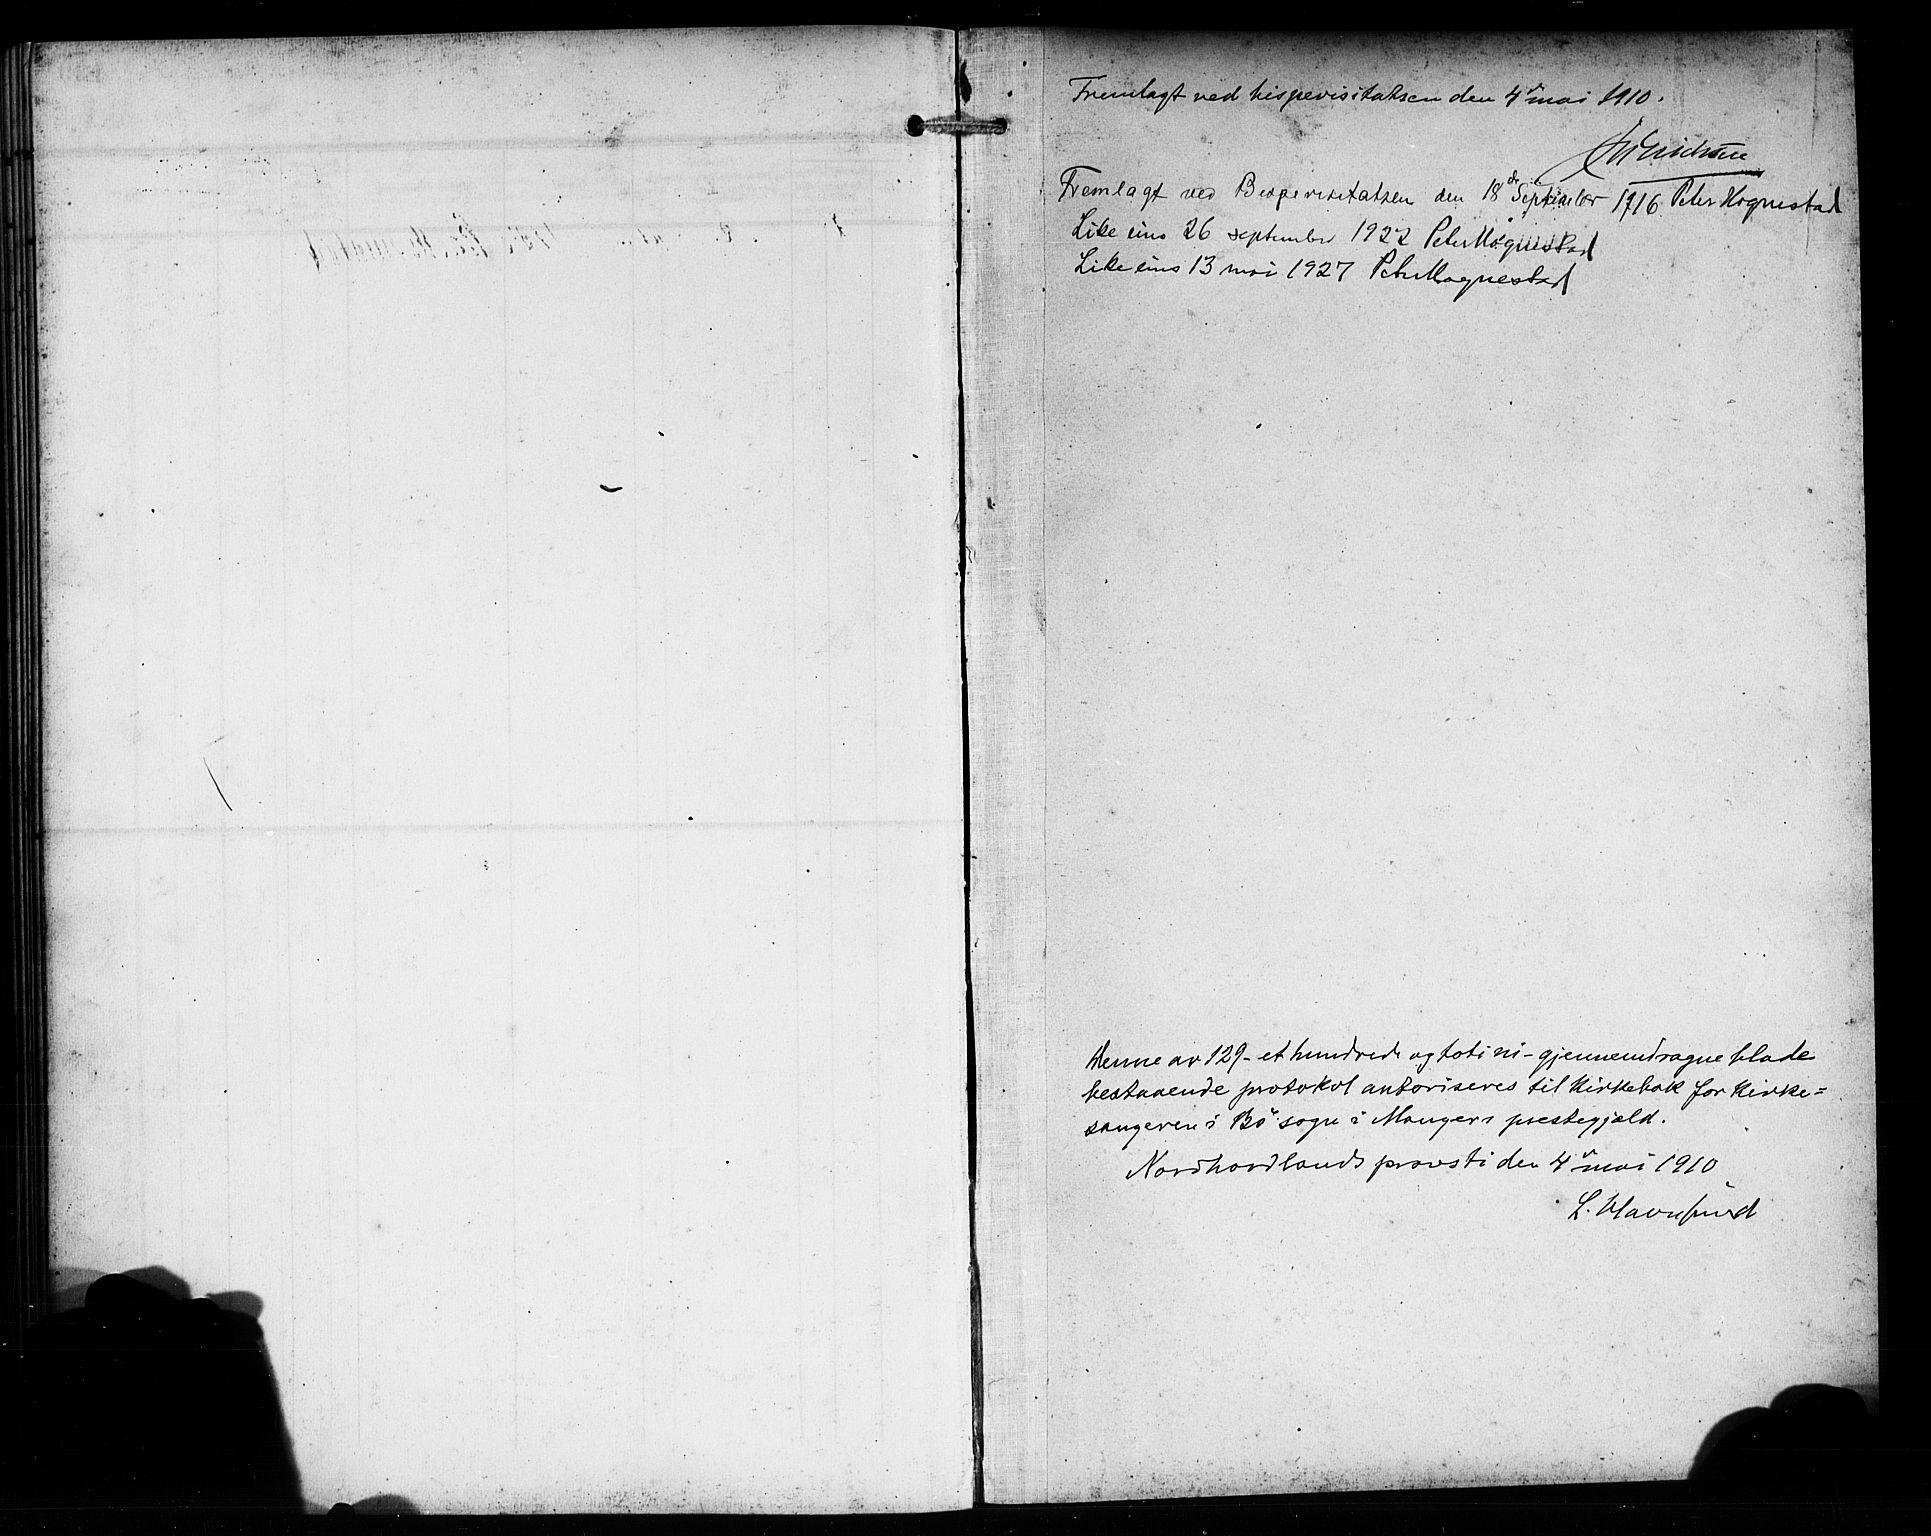 Fremlagt ved bispevisitatsen den 4de mai 1910.
Fremlagt ved Bispevisitatsen den 18de September 1916 Peter Hognestad
Likeeins 26 september 1922 Peter Hognestad
Likeeins 13 mai 1927 Peter Hognestad
Denne av 129 - et hundrede og toti ni - gjennemdragne blade
bestaaende protokol autoriseres til kirkebok for kirke=
sangeren i Bø sogn i Manger prestegjæld.
Nordhordlands provsti den 4de mai 1910
L.